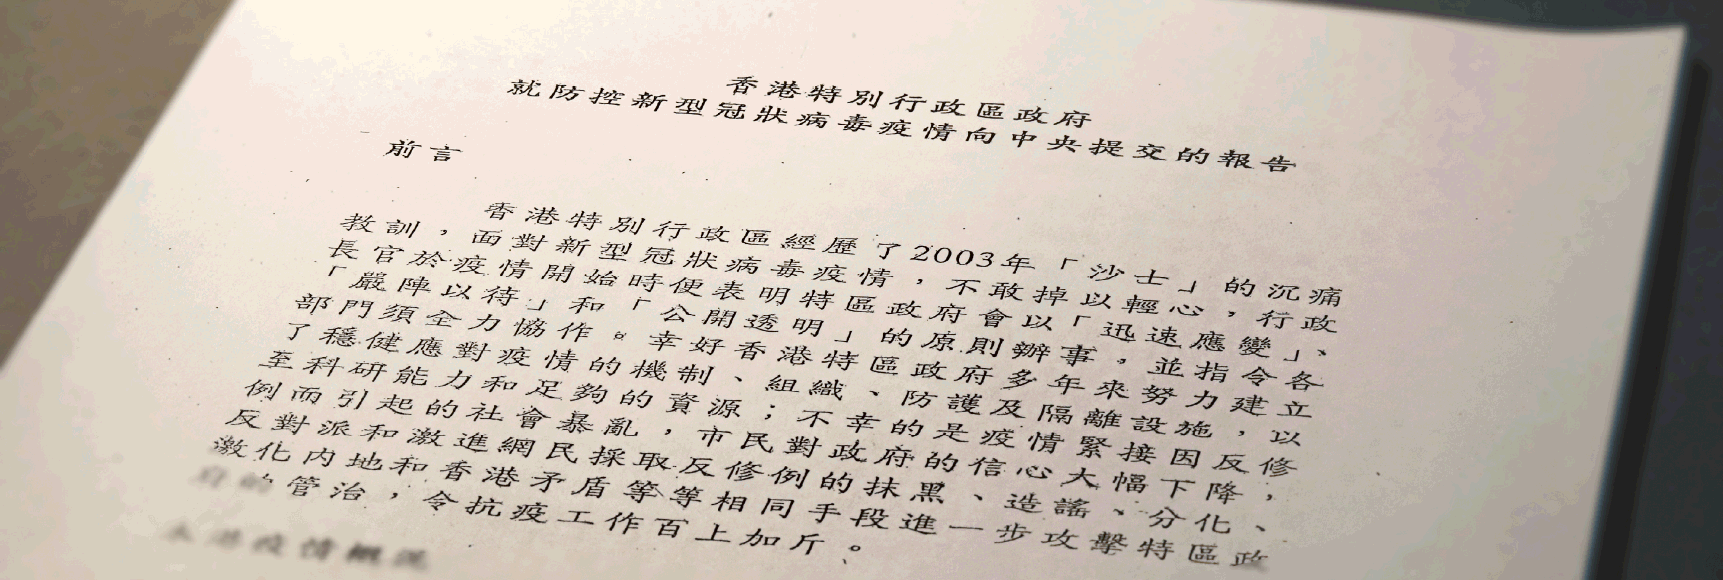 香港特別行政區政府
就防控新型冠狀病毒疫情向中央提交的報告
前言
香港特別行政區經歷了2003年「沙士」的沉痛
教訓，面對新型冠狀病毒疫情，不敢掉以輕心，行政
長官於疫情開始時便表明特區政府會以「迅速應變」、
「嚴陣以待」和「公開透明」的原則辦事，並指令各
部門須全力協作。幸好香港特區政府多年來努力建立
了穩健應對疫情的機制、組織、防護及隔離設施，以
至科研能力和足夠的資源；不幸的是疫情緊接因反修
例而引起的社會暴亂，市民對政府的信心大幅下降，
反對派和激進網民採取反修例的抹黑、造謠、分化、
激化內地和香港矛盾等等相同手段進一步攻擊特區政
府的管治，令抗疫工作百上加斤。
本港疫情概況